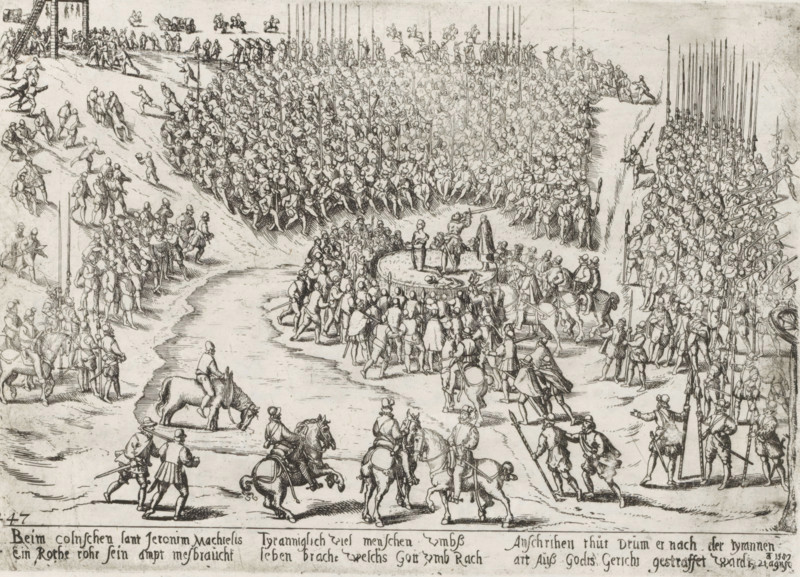 47
Beim colnschen lant Jeronim Machielis
Ein Rothe rohr sein ampt mesbraücht
Tyranniglich viel menschen vmbß
leben brachr welchs Gott vmb Rach
Anschrihen thüt Drüm er nach der tyrannen
art Auß Godts Gericht gestraffet ward